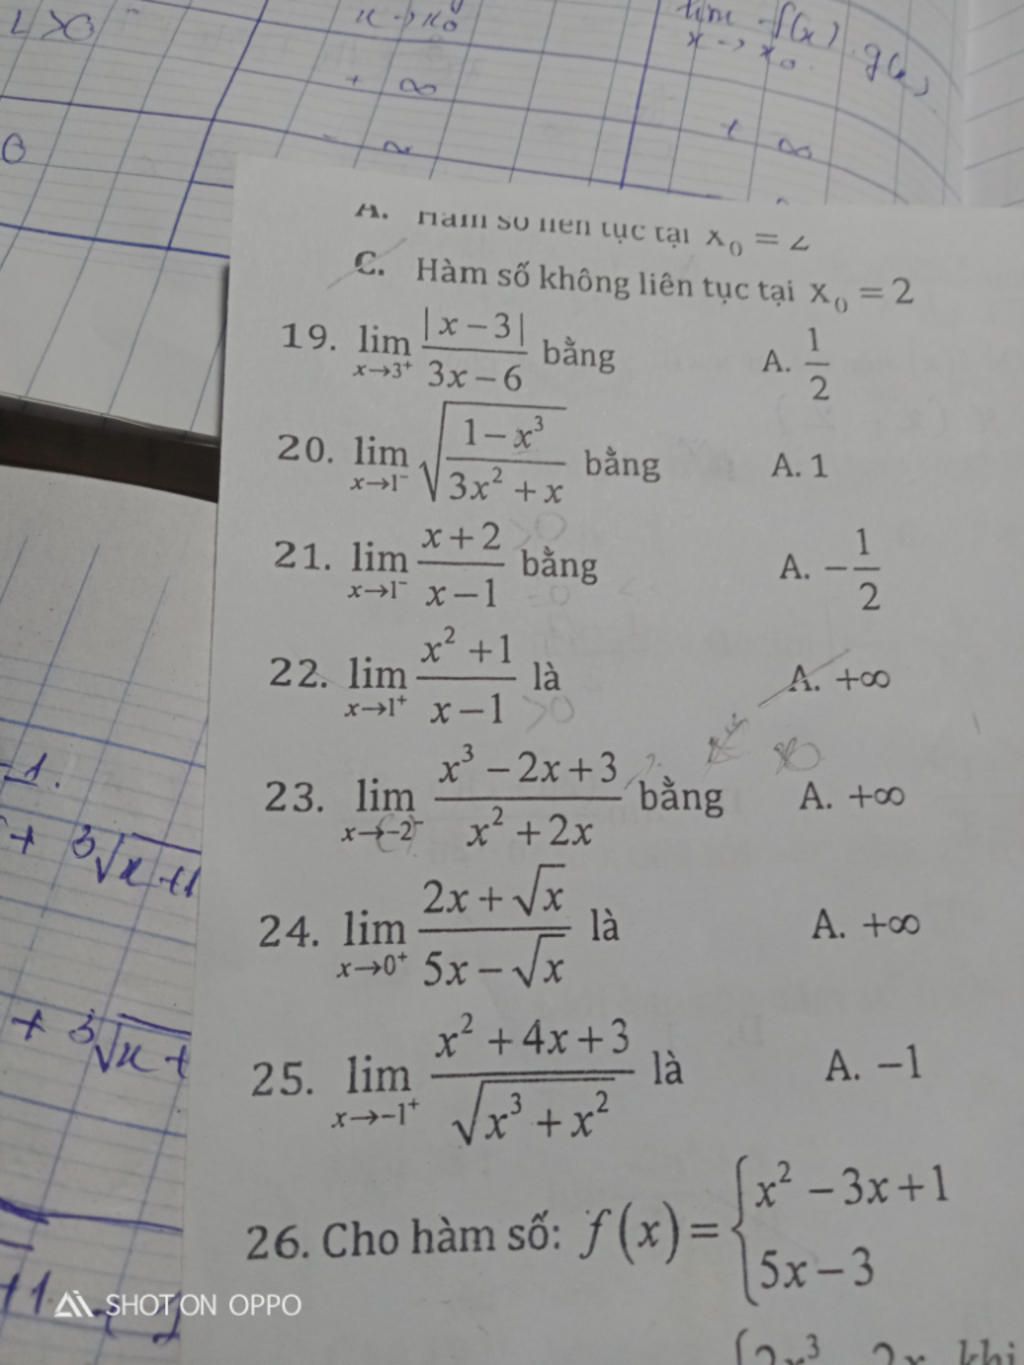 L > 0
x → x₀
lim f(x) . g(x)
x → x₀
+ ∞
+ ∞
0
- ∞
A. Hàm số liên tục tại x₀ = 2
C. Hàm số không liên tục tại x₀ = 2
19. lim x→3⁺ |x − 3| / (3x − 6) bằng A. 1/2
20. lim x→1⁻ √((1 − x³) / (3x² + x)) bằng A. 1
21. lim x→1⁻ (x + 2) / (x − 1) bằng A. −1/2
22. lim x→1⁺ (x² + 1) / (x − 1) là A. +∞
>0
23. lim x→−2⁻ (x³ − 2x + 3) / (x² + 2x) bằng A. +∞
-1.
+ ³√x+1
24. lim x→0⁺ (2x + √x) / (5x − √x) là A. +∞
+ ³√x+
25. lim x→−1⁺ (x² + 4x + 3) / √(x³ + x²) là A. −1
26. Cho hàm số: f(x) = { x² − 3x + 1
5x − 3
+1
SHOT ON OPPO
2x³ − 2x khi